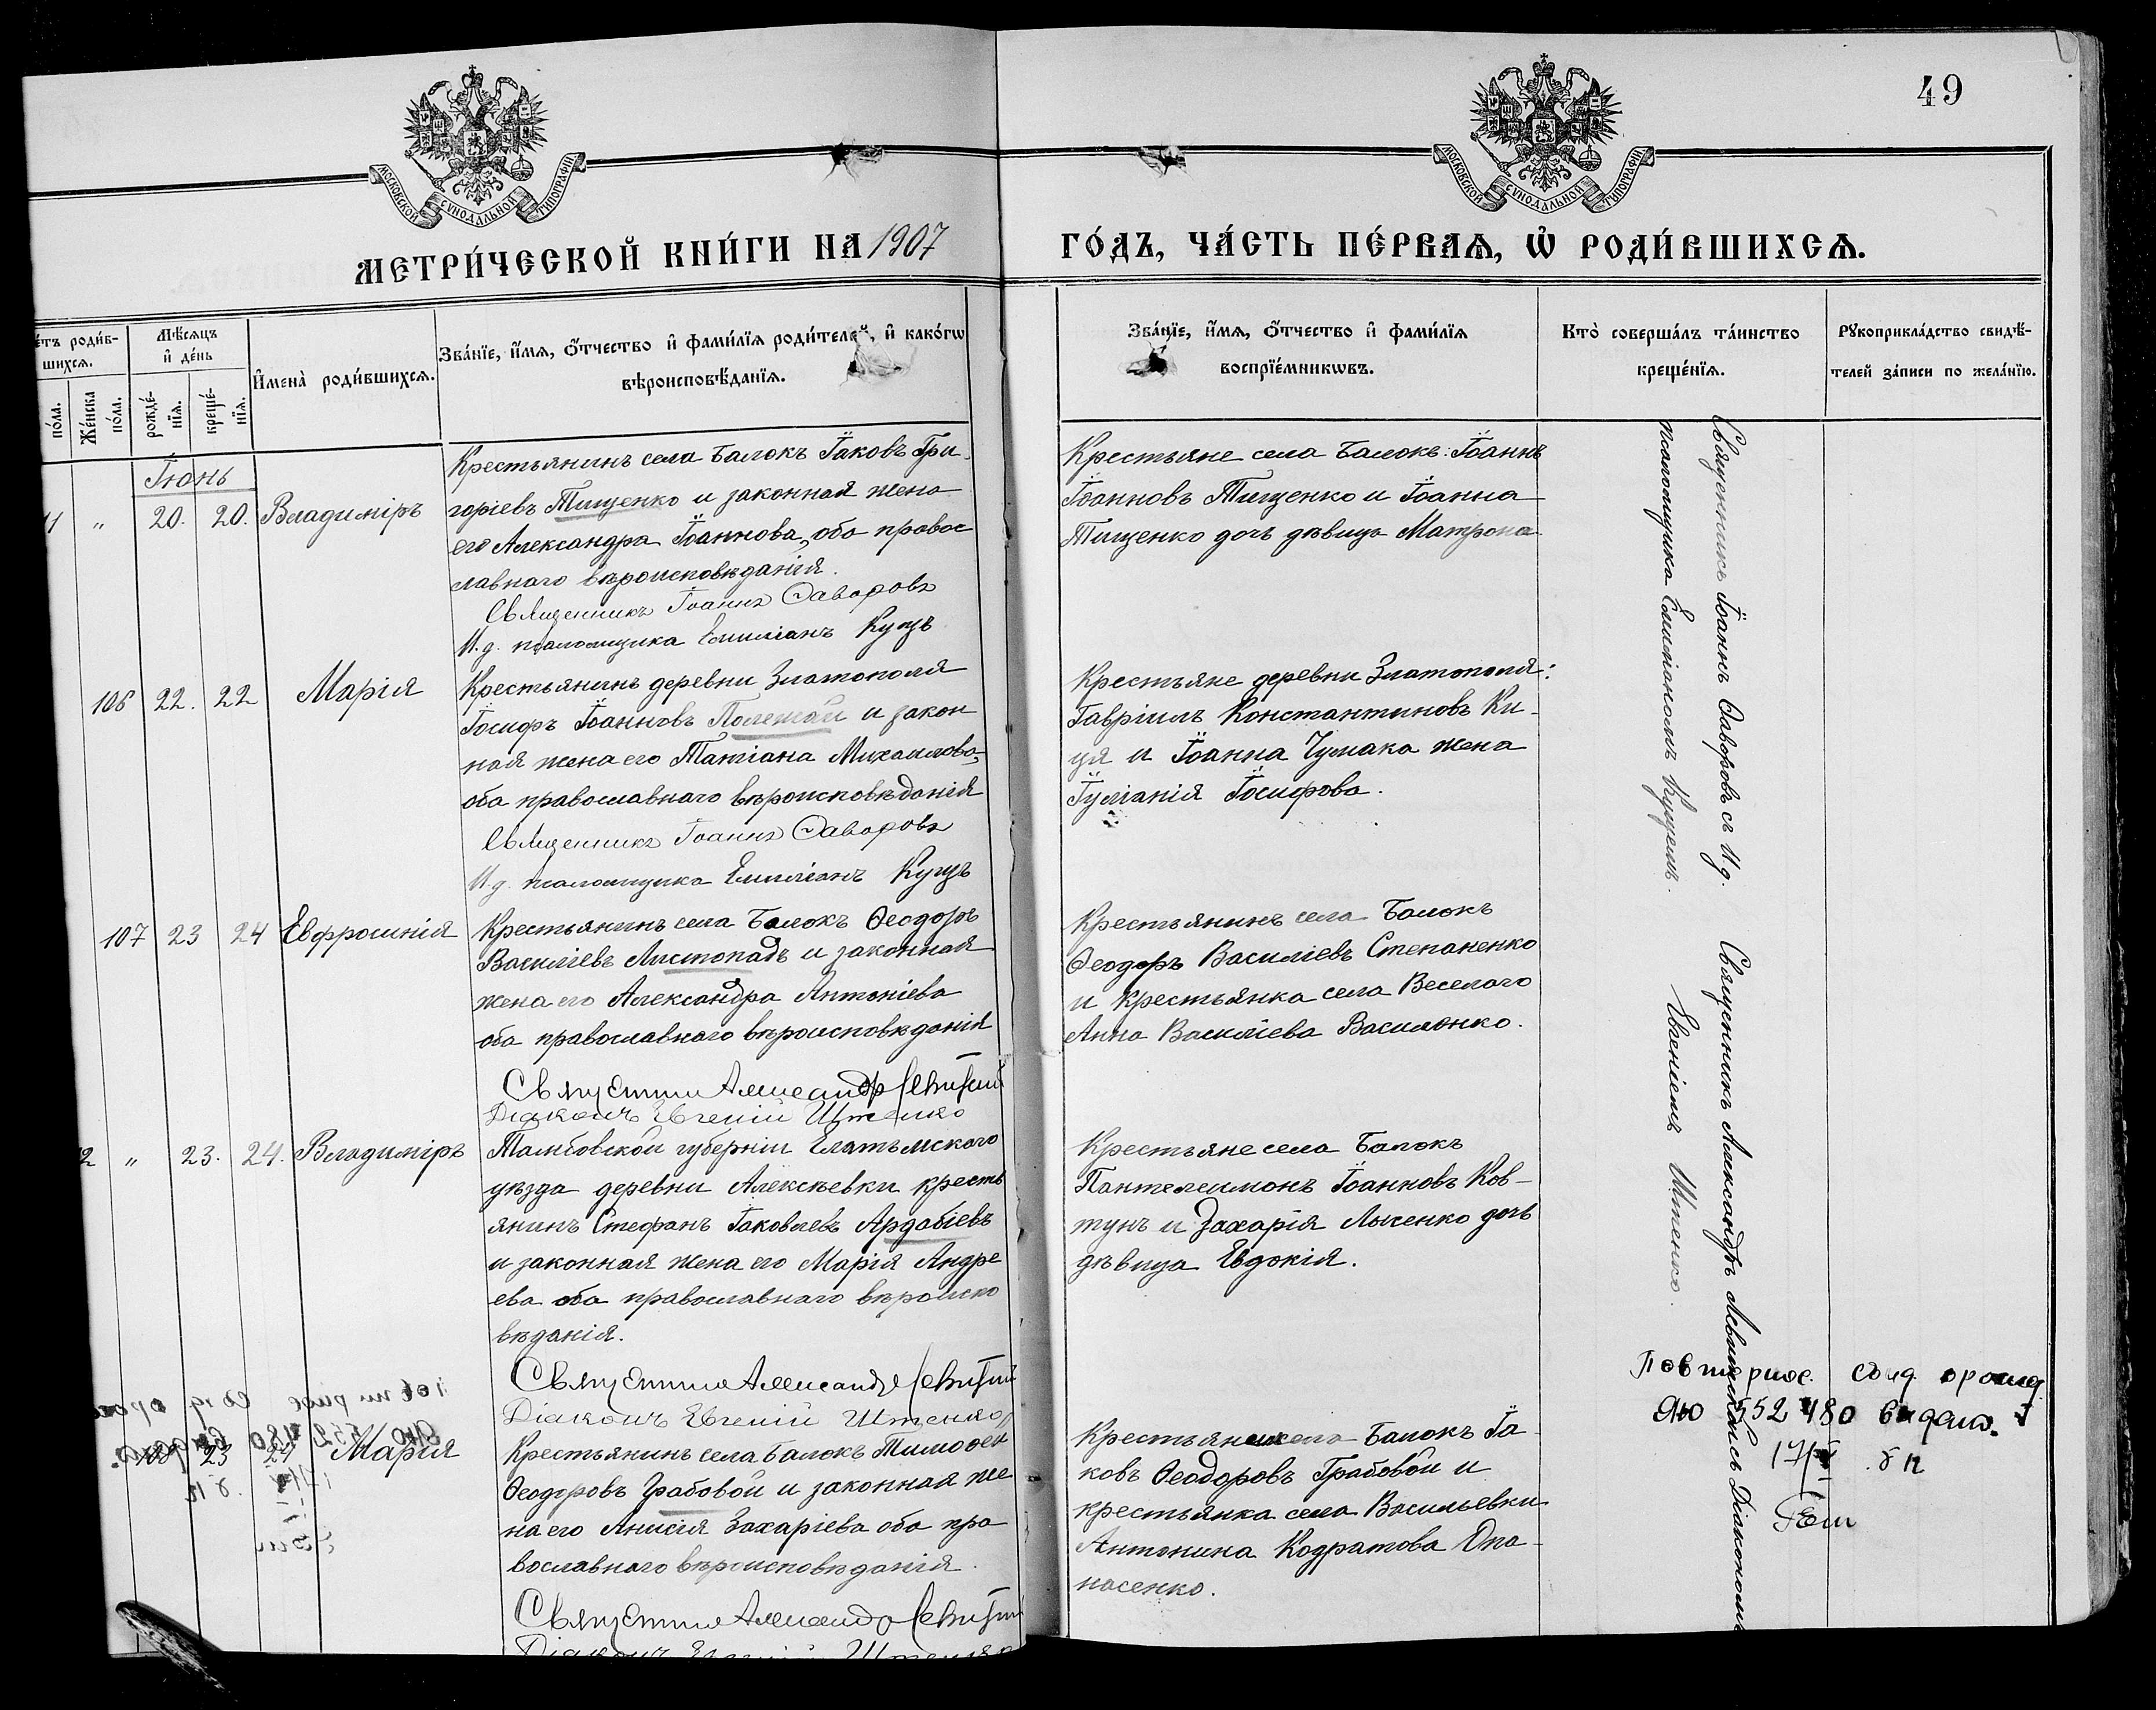 49
МОСКОВСКОЙ СѴНОДАЛЬНОЙ ТѴПОГРАФІИ
МОСКОВСКОЙ СѴНОДАЛЬНОЙ ТѴПОГРАФІИ
МЕТРИ́ЧЕСКОЙ КНИ́ГИ НА 1907
ГО́ДЪ, ЧА́СТЬ ПЕ́РВАЯ, Ѡ҆ РОДИ́ВШИХСЯ.
етъ роди́в-
шихся.
по́ла.
Же́нска
по́ла.
Мѣ́сяцъ
и҆ де́нь
рожде́-
нїя.
креще́-
нїя.
И҆мена̀ роди́вшихся.
Зва́нїе, и҆́мя, ѻ҆́тчество и҆ фами́лїя роди́телей, и҆ како́гѡ
вѣроисповѣ́данїя.
Зва́нїе, и҆́мя, ѻ҆́тчество и҆ фами́лїя
воспрїе́мникѡвъ.
Кто̀ соверша́лъ та́инство
креще́нїя.
Рꙋкоприкла́дство свидѣ́-
телей за́писи по жела́нїю.
Іюнь
11 " 20. 20. Владиміръ
Крестьянинъ села Балокъ Іаковъ Гри-
горіевъ Тищенко и законная жена
его Александра Іоаннова, оба правос
лавнаго вѣроисповѣданія.
Священникъ Іоаннъ Ѳаворовъ
И.д. псаломщика Емиліанъ Куцъ
Крестьяне села Балокъ: Іоаннъ
Іоанновъ Тищенко и Іоанна
Тищенко дочь дѣвица Матрона.
106 22. 22 Марія
Крестьянинъ деревни Златополя
Іосифъ Іоанновъ Полежай и закон
ная жена его Татіана Михаилова,
оба православнаго вѣроисповѣданія
Священникъ Іоаннъ Ѳаворовъ
И.д. псаломщика Емиліанъ Куцъ
Крестьяне деревни Златополя:
Гавріилъ Константиновъ Ки-
ця и Іоанна Чумака жена
Іуліанія Іосифова.
107 23 24 Евфросинія
Крестьянинъ села Балокъ Ѳеодоръ
Василіевъ Листопадъ и законная
жена его Александра Антоніева
оба православнаго вѣроисповѣданія
Священникъ Александръ Левитскій
Діаконъ Евгеній Штенко
Крестьянинъ села Балокъ
Ѳеодоръ Василіевъ Степаненко
и крестьянка села Веселаго
Анна Василіева Василенко.
2 " 23. 24. Владиміръ
Тамбовской губерніи Елатьмскаго
уѣзда деревни Алексѣевки кресть
янинъ Стефанъ Іаковлевъ Ардабіевъ
и законная жена его Марія Андре
ева оба православнаго вѣроиспо
вѣданія.
Священникъ Александръ Левитскій
Діаконъ Евгеній Штенко
Крестьяне села Балокъ
Пантелеимонъ Іоанновъ Ков-
тунъ и Захарія Лысенко дочь
дѣвица Евдокія.
108 23 24 Марія
Крестьянинъ села Балокъ Тимоѳей
Ѳеодоровъ Грабовой и законная же
на его Анисія Захаріева оба пра
вославнаго вѣроисповѣданія.
Священникъ Александръ Левитскій
Діаконъ Евгеній Штенко
села Балокъ Іа-
ковъ Ѳеодоровъ Грабовой и
крестьянка села Васильевки
Антонина Кодратова Опа-
насенко.
Священникъ Іоаннъ Ѳаворовъ съ И.д.
псаломщика Емиліаномъ Куцемъ.
Священникъ Александръ Левитскій съ Діакономъ
Евгеніемъ Штенко.
Повторное. свид. о рожд.
ЯЮ 552480 видано.